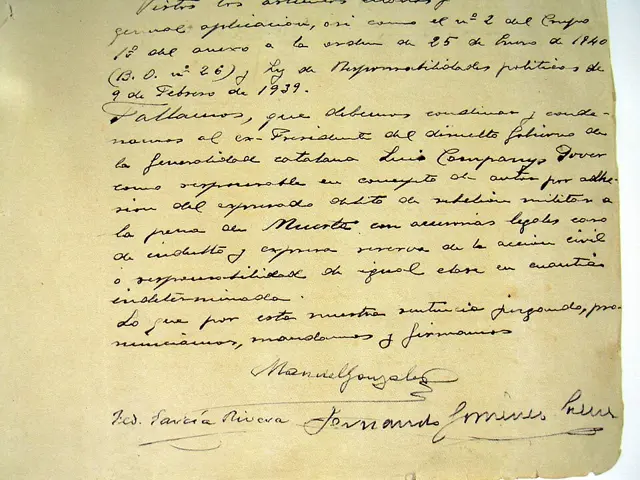 Vistos los artículos citados y
general aplicación, asi como el nº 2 del Grupo
1º del anexo a la orden de 25 de Enero de 1940
(B.O. nº 26) y Ley de Responsabilidades politicas de
9 de Febrero de 1939.
Fallamos, que debemos condenar y conde-
namos al ex-Presidente del disuelto Gobierno de
la Generalidad catalana Luis Companys Jover
como responsable en concepto de autor por adhe-
sion del expresado delito de rebelión militar a
la pena de Muerte con accesorias legales caso
de indulto y expresa reserva de la acción civil
o responsabilidad de igual clase en cuantia
indeterminada.
Lo que por esta nuestra sentencia juzgando, pro-
nunciamos, mandamos y firmamos
Manuel Gonzalez
Fed. García Rivera Fernando Giménez